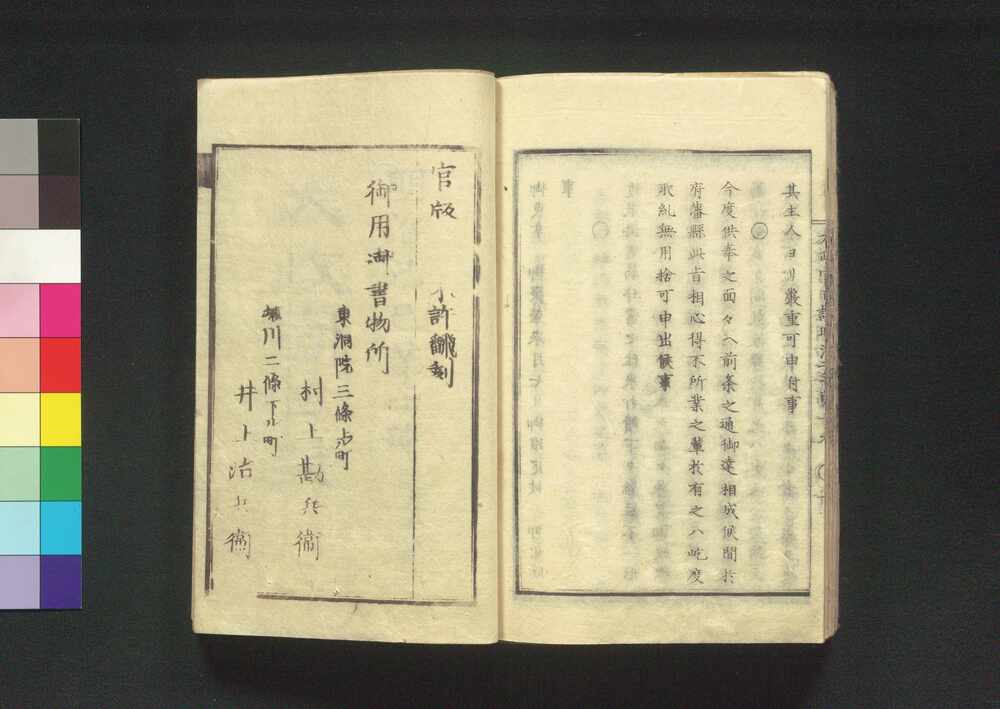 其主人ヨリ嚴重可申付事
今度供奉之面々ヘ前条之通御達相成候間於
府藩縣此旨相心得不所業之輩於有之ハ屹度
取糺無用捨可申出候事
官版 不許翻刻
御用御書物所
東洞院三條上ル町
村上勘兵衛
堀川二條下ル町
井上治兵衛